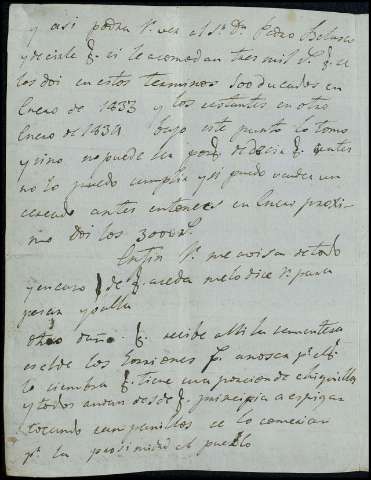 y asi podra V. ver al Sr. Dn. Pedro Belasco
y decirle q. si le acomodan tres mil r. q. se
los doi en estos terminos 500 Ducados en
Enero de 1833 y los restantes en otro
Enero de 1834 bajo este punto lo tomo
y sino no puede ser porq. de decir q. antes
no lo puedo cumplir y si puedo vender un
cercado antes entonces en Enero proxi-
mo doi los 3000 r.
Enfin V. me avisara de todo
y en caso de q. aceda me lo dice V. para
pasar y palla
otro daño q. recibe alli la sementera
es el de los Gorriones q. a nosca pr. el q.
lo ciembra q. tiene una porcion de chiquillos
y todos andan desde q. principia a espigar
tocando campanillos se lo comerian
pr. la proximidad al pueblo